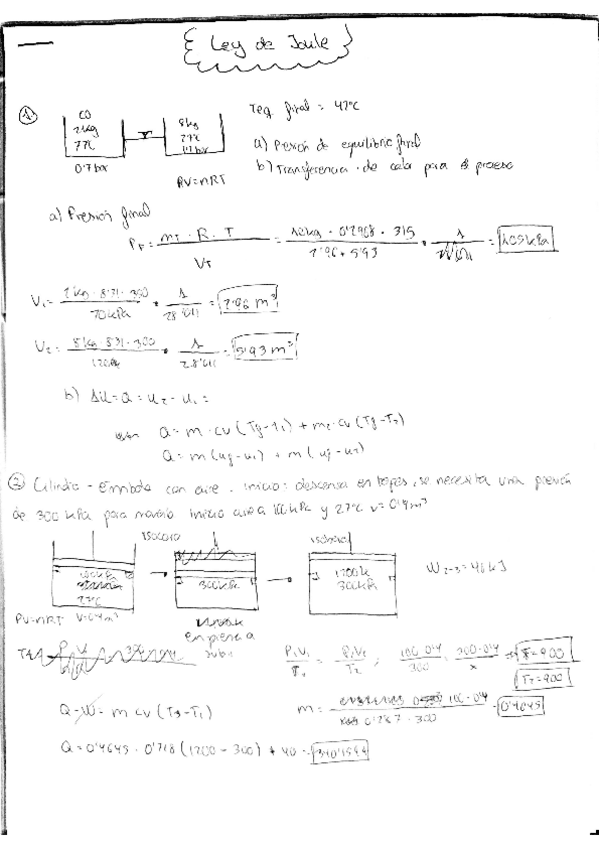 Ley de Joule
①
CO
2kg
77ºC
0'7 bar
8kg
27ºC
1'2 bar
PV=nRT
Teq. final = 42ºC
a) Presión de equilibrio final
b) Transferencia de calor para el proceso
a) Presión final
P_F = m_T · R · T / V_T = 10kg · 0'2968 · 315 / 7'96 + 5'93 · 1 / = 105 kPa
V₁ = 2kg · 8'31 · 350 / 70kPa · 1 / 28'011 =
V₂ = 8kg · 8'31 · 300 / 120kPa · 1 / 28'011 = 5'93 m³
b) ΔU = Q = U₂ - U₁ =
Q = m · cv (Tf - T₁) + m₂ · cv (Tf - T₂)
Q = m (uf - u₁) + m (uf - u₂)
② Cilindro - Émbolo con aire. Inicio: descansa en topes, se necesita una presión
de 300 kPa para moverlo. Inicio 100 kPa y 27ºC V=0'4m³
isocoro
isobaro
100kPa
27ºC
V=0'4m³
300kPa
empieza a
subir
1200k
300kPa
PV=nRT
P₁V₁ / T₁ = P₂V₂ / T₂ ; 100·0'4 / 300 = 300·0'4 / x
T₂=900
Q - W = m cv (T₃-T₁)
m = 100·0'4 / 0'287 · 300 = 0'4645
Q = 0'4645 · 0'718 (1200 - 300) + 40 =